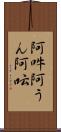 阿吽阿う
ん阿呍